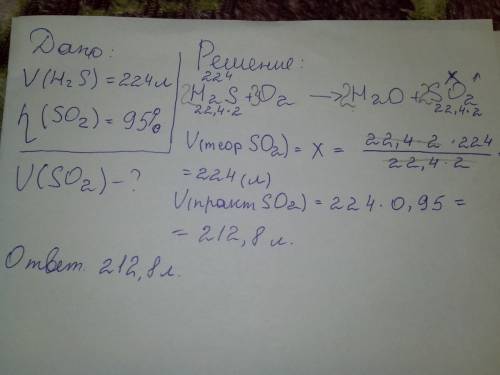 Дано:
V(H₂S) = 224 л
η(SO₂) = 95%
V(SO₂) - ?
Решение:
224 x
2H₂S + 3O₂ → 2H₂O + 2SO₂↑
22,4·2 22,4·2
V(теор SO₂) = x = 22,4·2·224 / 22,4·2
= 224 (л)
V(практ SO₂) = 224·0,95 =
= 212,8 л.
Ответ. 212,8 л.